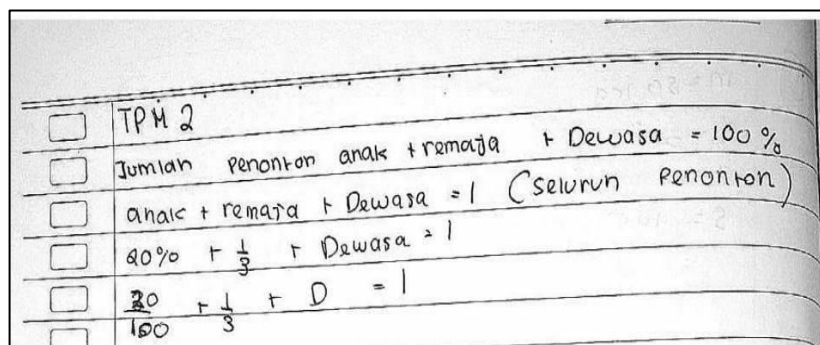 TPM 2
Jumlah penonton anak + remaja + Dewasa = 100%
anak + remaja + Dewasa = 1 (seluruh penonton)
20% + 1/3 + Dewasa = 1
20/100 + 1/3 + D = 1